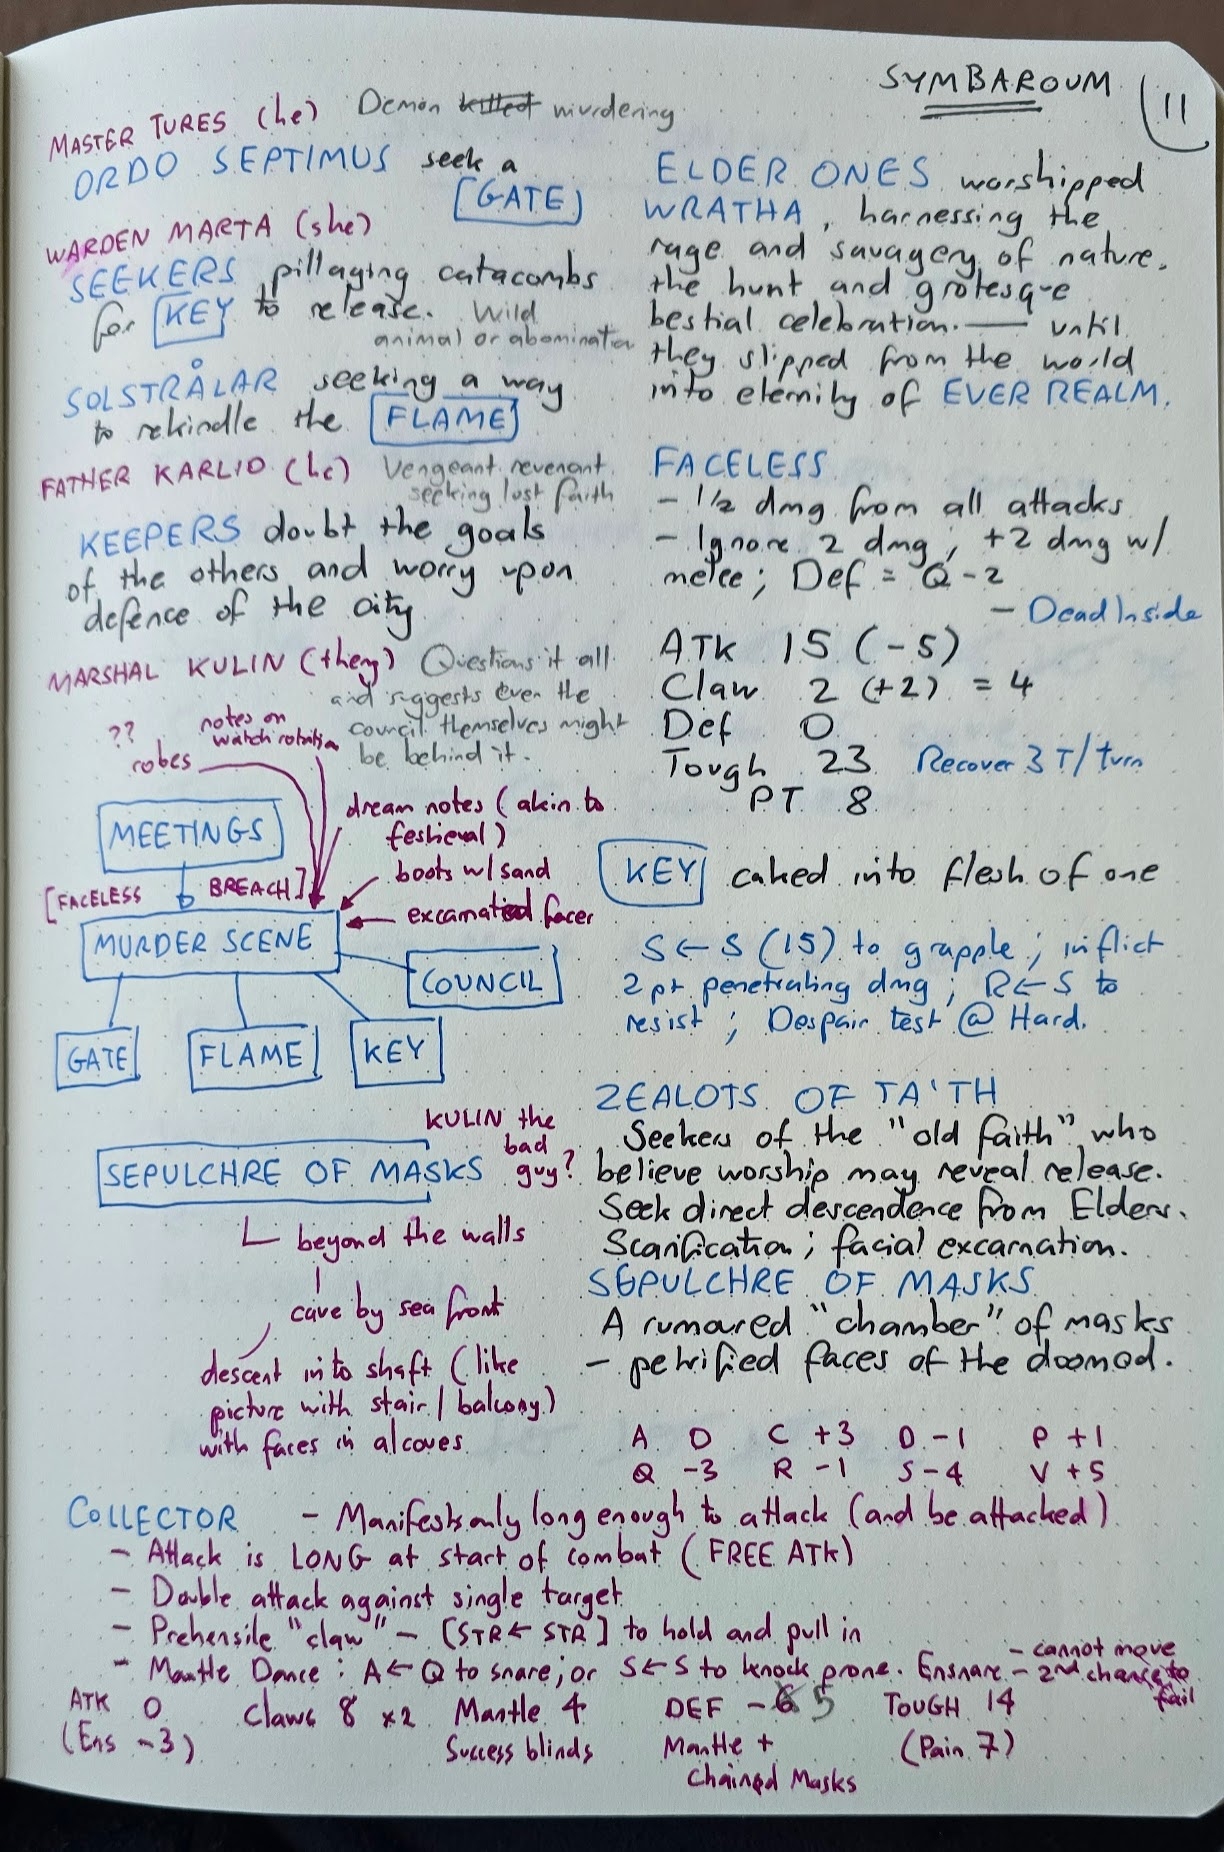 SYMBAROUM
11
MASTER TURES (he) Demon killed murdering
ORDO SEPTIMUS seek a
[GATE]
WARDEN MARTA (she)
SEEKERS pillaging catacombs
for KEY to release. Wild
animal or abomination
SOLSTRÅLAR seeking a way
to rekindle the FLAME
FATHER KARLIO (he) Vengeant revenant
seeking lost faith
KEEPERS doubt the goals
of the others and worry upon
defence of the city
MARSHAL KULIN (they) Questions it all
and suggests even the
council themselves might
be behind it.
??
robes
notes on
watch rotation
dream notes (akin to
festieval)
boots w/ sand
excarnated faces
MEETINGS
[FACELESS BREACH]
MURDER SCENE
COUNCIL
GATE
FLAME
KEY
KULIN the
bad
guy?
SEPULCHRE OF MASKS
beyond the walls
cave by sea front
descent into shaft (like
picture with stair/balcony)
with faces in alcoves
ELDER ONES worshipped
WRATHA, harnessing the
rage and savagery of nature,
the hunt and grotesque
bestial celebration. — until
they slipped from the world
into eternity of EVER REALM.
FACELESS
- 1/2 dmg from all attacks
- Ignore 2 dmg; +2 dmg w/
melee; Def = Q-2
- Dead Inside
ATK 15 (-5)
Claw 2 (+2) = 4
Def 0
Tough 23 Recover 3 T/turn
PT 8
KEY caked into flesh of one
S←S (15) to grapple; inflict
2 pt penetrating dmg; R←S to
resist; Despair test @ Hard.
ZEALOTS OF TA'TH
Seekers of the "old faith" who
believe worship may reveal release.
Seek direct descendence from Elders.
Scarification; facial excarnation.
SEPULCHRE OF MASKS
A rumoured "chamber" of masks
- petrified faces of the doomed.
A 0 C +3 D -1 P +1
Q -3 R -1 S -4 V +5
COLLECTOR - Manifests only long enough to attack (and be attacked)
- Attack is LONG at start of combat (FREE ATK)
- Double attack against single target
- Prehensile "claw" - [STR ← STR] to hold and pull in
- Mantle Dance: A←Q to snare; or S←S to knock prone. Ensnare - cannot move
- 2nd chance to
fail
ATK 0 Claws 8 x2 Mantle 4 DEF -6 5 TOUGH 14
(Ens -3) Success blinds Mantle + (Pain 7)
Chained Masks